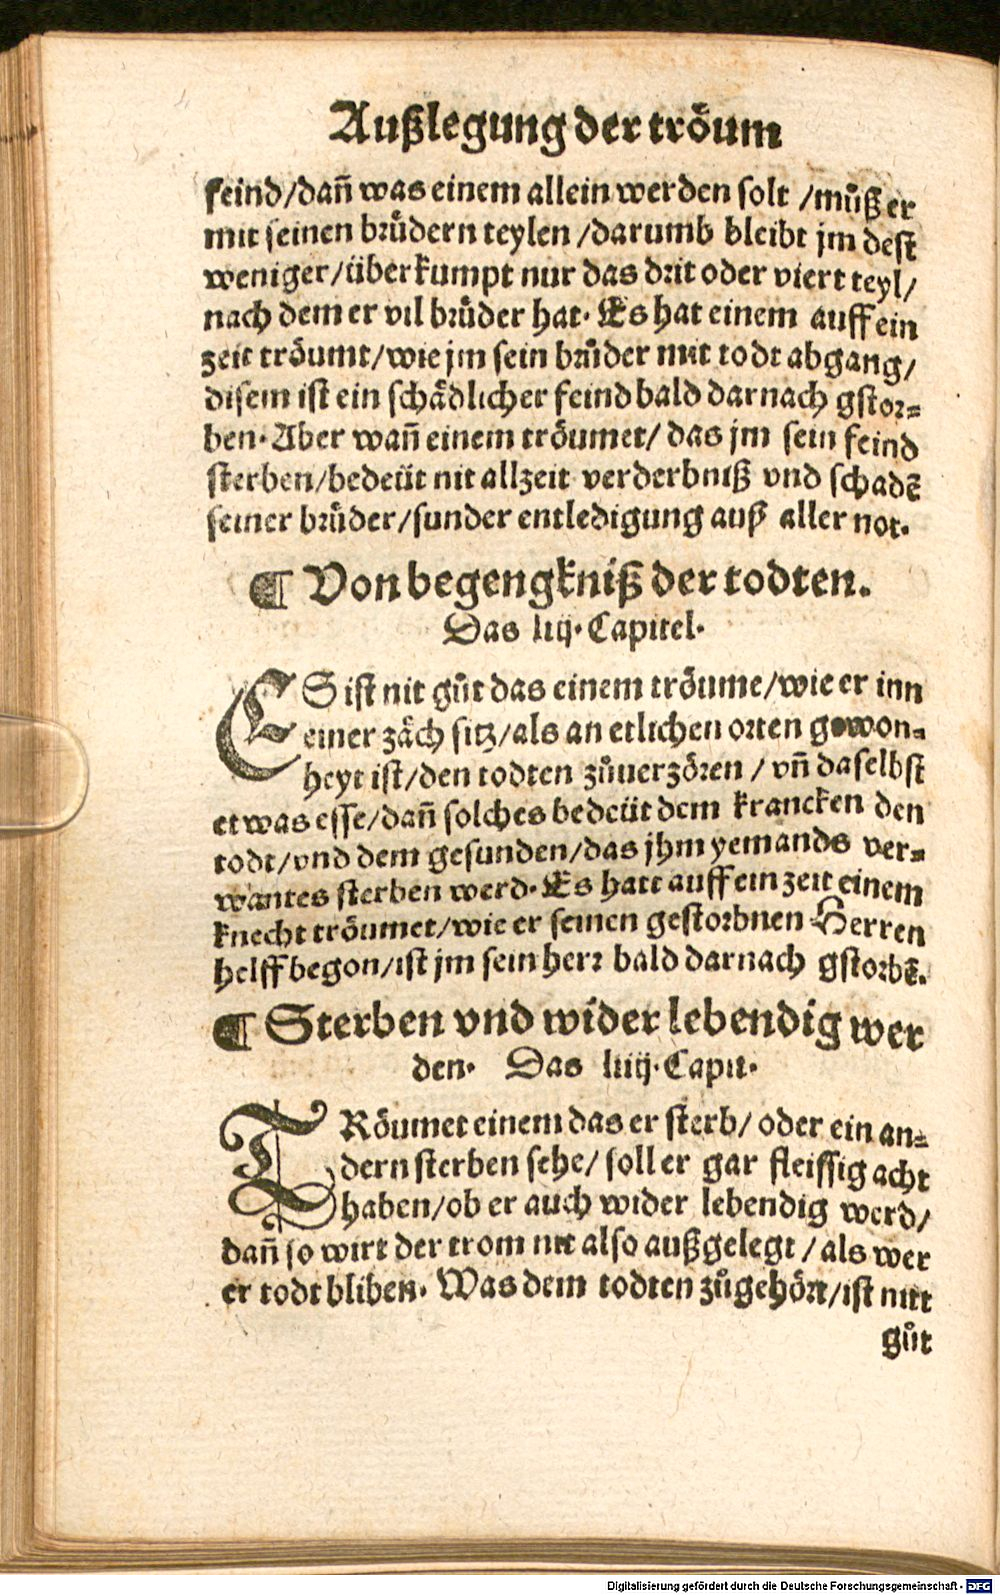 Außlegung der tröum
feind/dañ was einem allein werden solt /můß er
mit seinen brůdern teylen /darumb bleibt jm dest
weniger/überkumpt nur das drit oder viert teyl/
nach dem er vil brůder hat. Es hat einem auff ein
zeit tröumt/wie jm sein brůder mit todt abgang/
disem ist ein schädlicher feind bald darnach gstor⸗
ben. Aber wañ einem tröumet/ das jm sein feind
sterben/bedeüt nit allzeit verderbniß vnd schadẽ
seiner brůder/sunder entledigung auß aller not.
¶ Von begengkniß der todten.
Das liij. Capitel.
ES ist nit gůt das einem tröume/wie er inn
einer zäch sitz/als an etlichen orten gewon⸗
heyt ist/den todten zůuerzören / vñ daselbst
etwas esse/dañ solches bedeüt dem krancken den
todt/vnd dem gesunden/das jhm yemands ver⸗
wantes sterben werd. Es hatt auff ein zeit einem
knecht tröumet/wie er seinen gestorbnen Herren
helff begon/ist jm sein herr bald darnach gstorbẽ.
¶ Sterben vnd wider lebendig wer
den. Das liiij. Capit.
TRöumet einem das er sterb/ oder ein an⸗
dern sterben sehe/ soll er gar fleissig acht
haben/ob er auch wider lebendig werd/
dañ so wirt der trom nit also außgelegt / als wer
er todt bliben. Was dem todten zůgehört/ist nitt
gůt
Digitalisierung gefördert durch die Deutsche Forschungsgemeinschaft - DFG